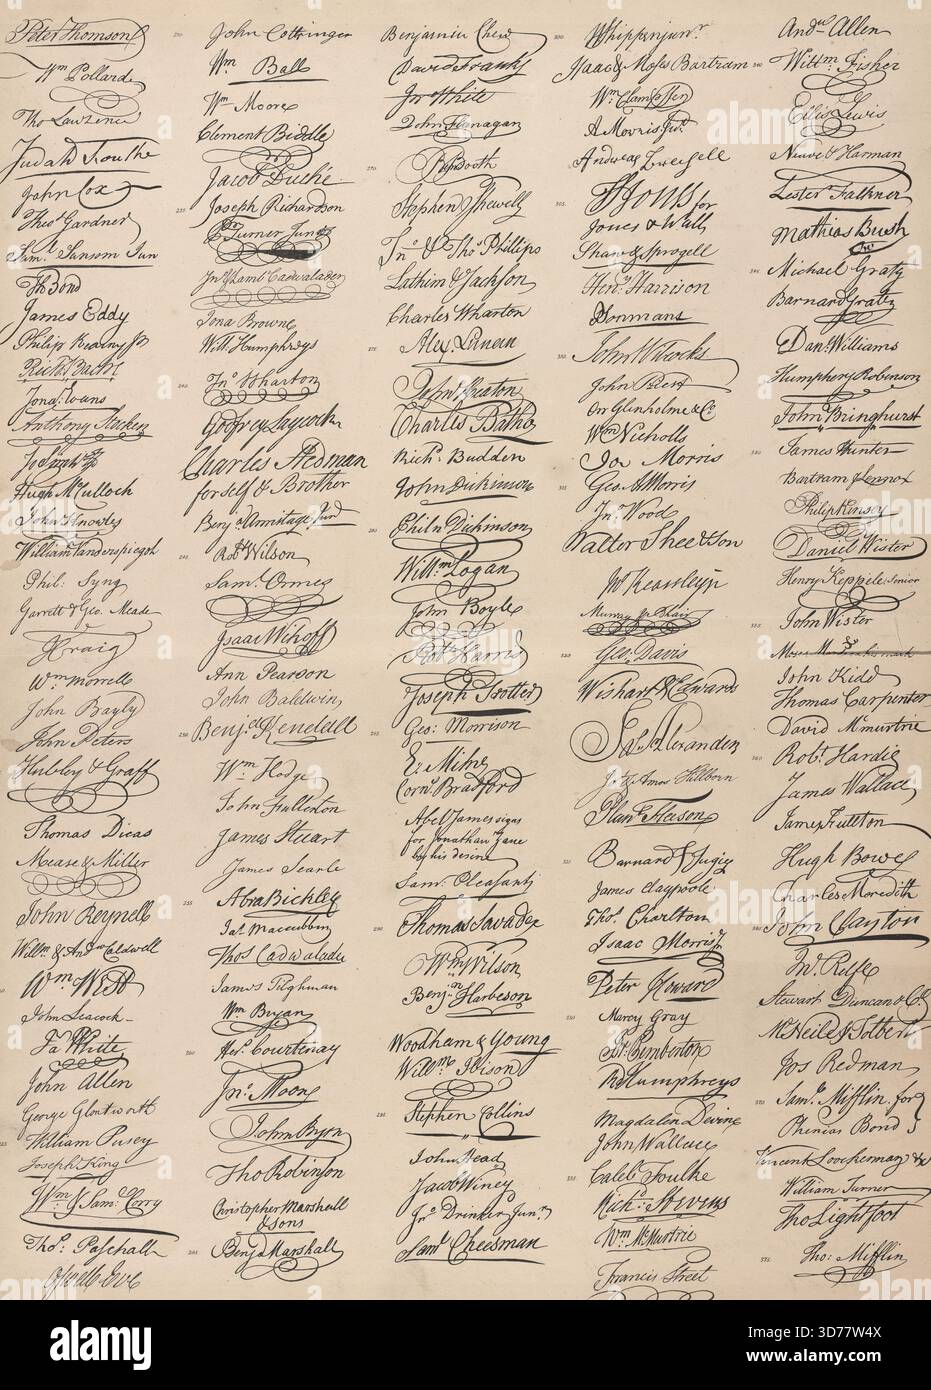 Peter Thomson
Wm Pollard
Tho Lawrence
Judah Foulke
John Cox
Theo Gardner
Saml. Sansom Jun
Tho Bond
James Eddy
Philip Kearny Jr
Richd. Bache
Jona: Evans
Anthony
Hugh McCulloch
John Knowles
William Vanderspiegel
Phil. Syng
Garrett & Geo. Meade
Craig
Wm Morrell
John Bayly
John Peters
Hubley & Graff
Thomas Dicas
Mease & Miller
John Reynell
Willm. & Andw Caldwell
Wm West
John Leacock
Ja White
John Allen
George Glentworth
William Pusey
Joseph King
Wm & Saml. Corry
Thos. Paschall
Oswell Eve
210.
John Cottringer
Wm Ball
Wm Moore
Clement Biddle
Jacob Duché
235.
Joseph Richardson
Turner Junr
Jno & Lamb Cadwalader
Jona Browne
Will Humphreys
240.
Jno. Wharton
Godfrey Laycock
Charles Stedman
for self & Brother
Benj Armitage Jun
245.
Robt Wilson
Saml. Ormes
Isaac Wikoff
Ann Pearson
John Baldwin
250.
Benj. Kendall
Wm Hodge
John Fullerton
James Stuart
James Searle
255.
Abra Bickley
Jas. Maccubbin
Thos Cadwalader
James Tilghman
Wm Bryan
260.
Hers. Courtenay
Jno. Moore
John Byrn
Tho Robinson
Christopher Marshall
& Sons
265.
Benj Marshall
Benjamin Chew
David Franks
Jno White
John Flanagan
270.
B Booth
Stephen Shewell
Jno. & Thos Phillips
Lathim & Jackson
Charles Wharton
275.
Alex. Lunan
John Heaton
Charles Batho
Richd. Budden
John Dickinson
280.
Philn Dickinson
Willm. Logan
John Boyle
Robt Harris
Joseph Trotter
285.
Geo: Morrison
E. Milne
Corns. Bradford
Abel James signs
for Jonathan Zane
by his desire
Saml. Pleasants
290.
Thomas Savadge
Wm Wilson
Benjn. Harbeson
Woodham & Young
Willm. Ibison
295.
Stephen Collins
John Head
Jacob Winey
Jno. Drinker Junr
Saml Cheesman
300.
Whippinjunr.
Isaac & Moses Bartram
Wm Clampffer
A Morris Jur.
Andreas Zweifell
305.
T Jones for
Jones & Wall
Shaw & Sprogell
Henry. Harrison
Bonmans
310.
John Wilcocks
John Priest
Orr Glenholme & Co
Wm Nicholls
Jos Morris
315.
Geo. A Morris
Jno Wood
Walter Shee & Son
Wm Keassleyjr
Murray & Blair
320.
Geo. Davis
Wishart & Edwards
W. Alexander
Jo & Amos Hillborn
Plunkt Fleeson
325.
Barnard Fugiz
James Claypoole
Thos. Charlton
Isaac Morris Jr
Peter Howard
330.
Marcy Gray
Is. Pemberton
R Humphreys
Magdalen Devine
John Wallace
335.
Caleb Foulke
Richd. Stevens
Wm McMurtrie
Francis Street
Andw Allen
340.
Willm. Fisher
Ellis Lewis
Neave & Harman
Lester Falkner
Mathias Bush
345.
Michael Gratz
Barnard Gratz
Danl. Williams
Humphery Robinson
John Bringhurst
350.
James Hunter
Bartram & Lennox
Philip Kinsey
Daniel Wister
Henry Keppele Senior
355.
John Wister
John Kidd
Thomas Carpenter
David McMurtrie
360.
Robt. Hardie
James Wallace
James Fullton
Hugh Bowes
Charles Meredith
365.
John Clayton
Jno. Relfe
Stewart Duncan & Co.
McNeile & Tolbert
Jos Redman
370.
Saml. Mifflin. for
Phineas Bond
Vincent Loockerman & Co
William Turner
Tho Lightfoot
375.
Tho: Mifflin
alamy
Image ID: 3D7W4X
www.alamy.com